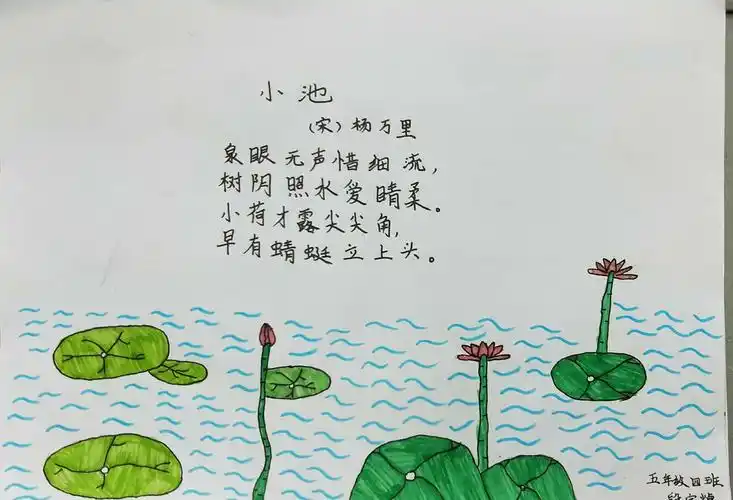 小池
(宋)杨万里
泉眼无声惜细流,
树阴照水爱睛柔。
小荷才露尖尖角,
早有蜻蜓立上头。
五年级四班